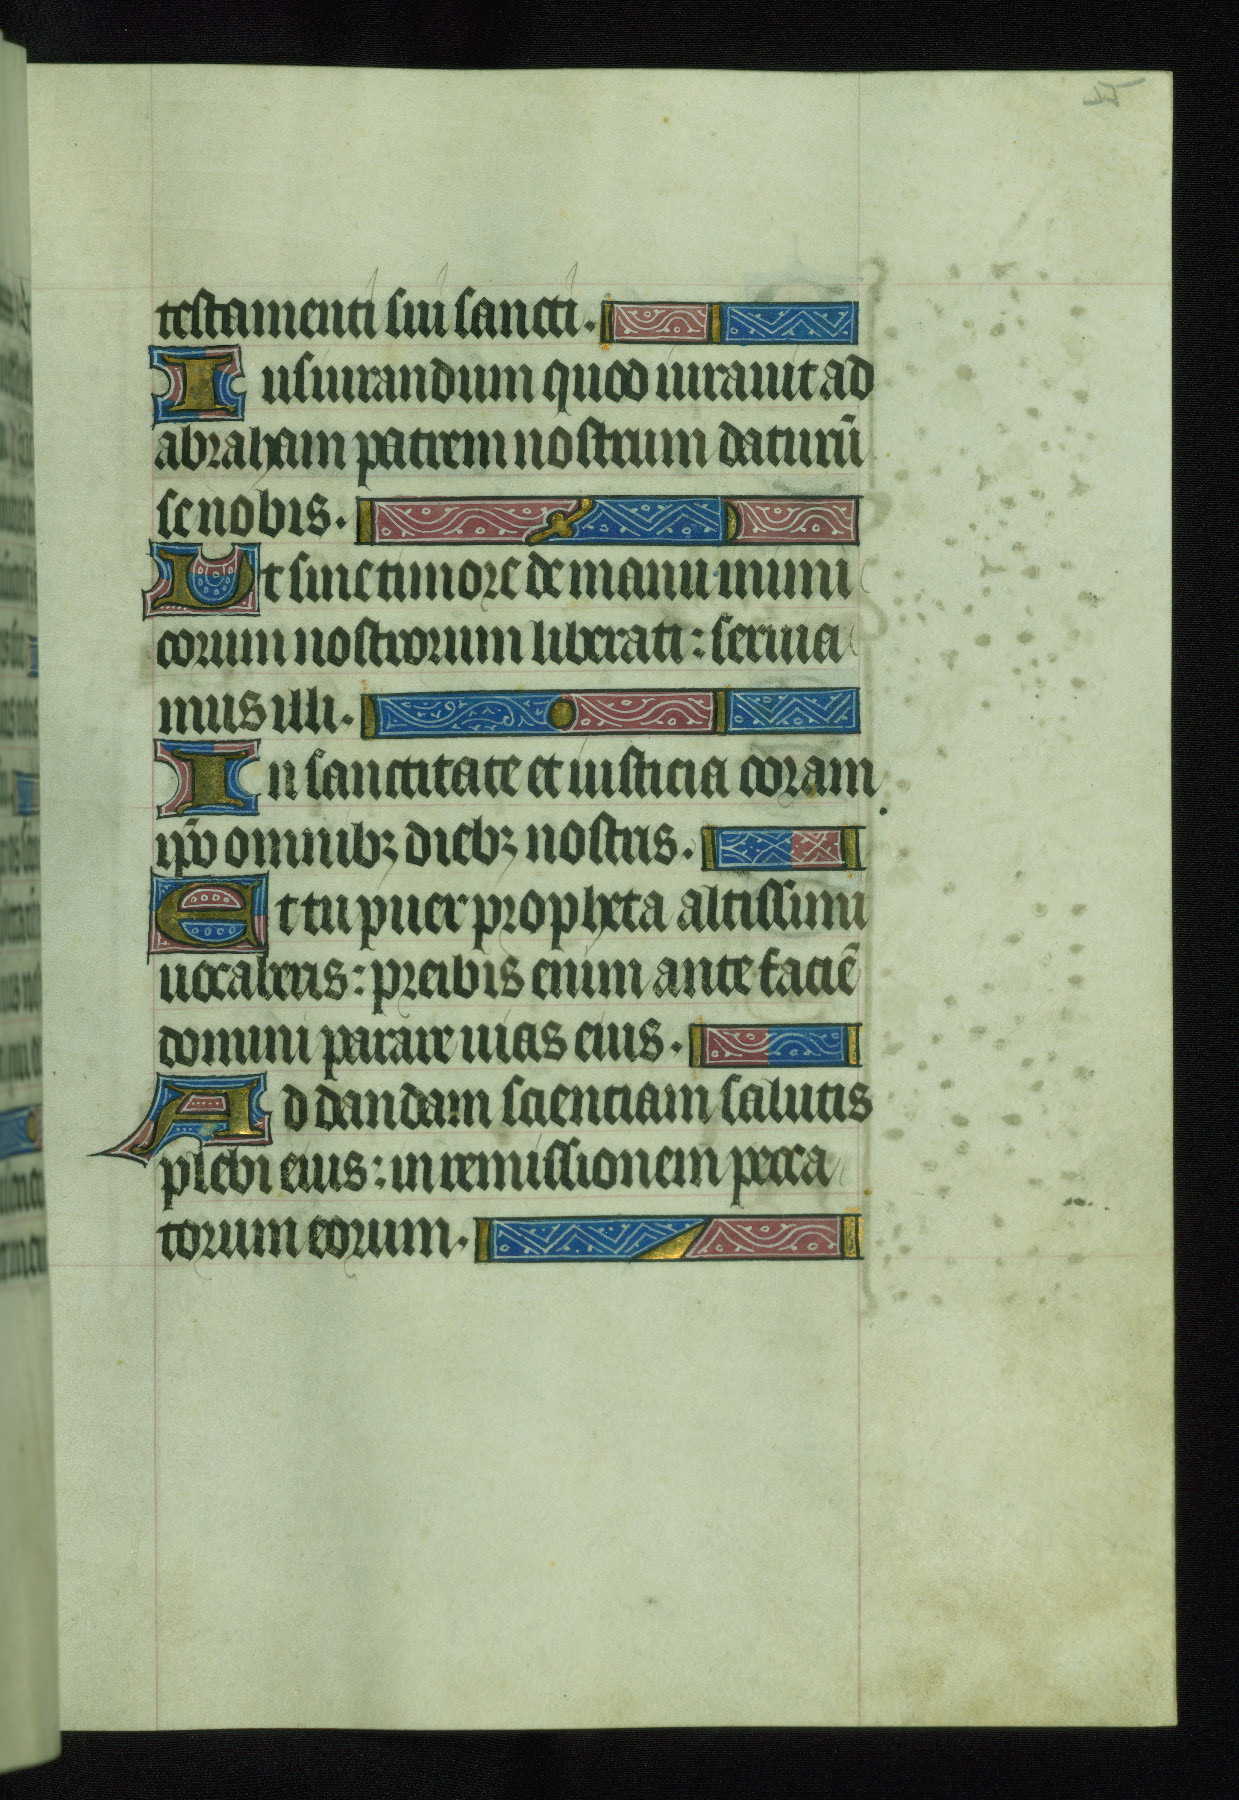 testamenti sui sancti.
Iusiurandum quod iurauit ad
abraham patrem nostrum daturū
se nobis.
Ut sine timore de manu inimi
corum nostrorum liberati: seruia
mus illi.
In sanctitate et iusticia coram
ip̄o omnibꝫ diebꝫ nostris.
Et tu puer propheta altissimi
uocaberis: preibis enim ante faciē
domini parare uias eius.
Ad dandam scientiam salutis
plebi eius: in remissionem pecca
torum eorum.